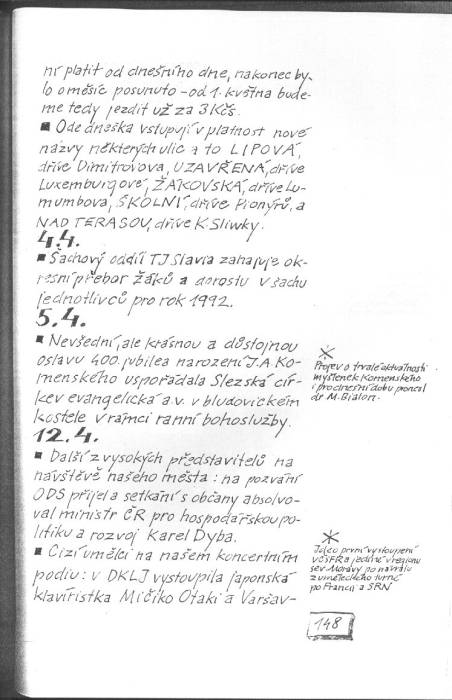 ní platit od dnešního dne, nakonec by-
lo o měsíc posunuto - od 1. května bude-
me tedy jezdit už za 3 Kčs.
■ Ode dneška vstupují v platnost nové
názvy některých ulic a to LIPOVÁ,
dříve Dimitrovova, UZAVŘENÁ, dříve
Luxemburgové, ŽÁKOVSKÁ, dříve Lu-
mumbova, ŠKOLNÍ, dříve Pionýrů, a
NAD TERASOU, dříve K. Śliwky.
4.4.
■ Šachový oddíl TJ Slavia zahajuje ok-
resní přebor žáků a dorostu v šachu
jednotlivců pro rok 1992.
5.4.
■ Nevšední, ale krásnou a důstojnou
oslavu 400. jubilea narození J. A. Ko-
menského uspořádala Slezská cír-
kev evangelická a.v. v bludovickém
kostele v rámci ranní bohoslužby.
12.4.
■ Další z vysokých představitelů na
návštěvě našeho města: na pozvání
ODS přijel a setkání s občany absolvo-
val ministr ČR pro hospodářskou po-
litiku a rozvoj Karel Dyba.
■ Cizí umělci na našem koncertním
podiu: v DKLJ vystoupila japonská
klavíristka Mičiko Otaki a Varšav-
Projev o trvalé aktuálnosti
myšlenek Komenského
i pro dnešní dobu pronesl
dr M. Bialon.
Jde o první vystoupení
v ČSFR a jediné v regionu
sev. Moravy po návratu
z uměleckého turné
po Francii a SRN
148